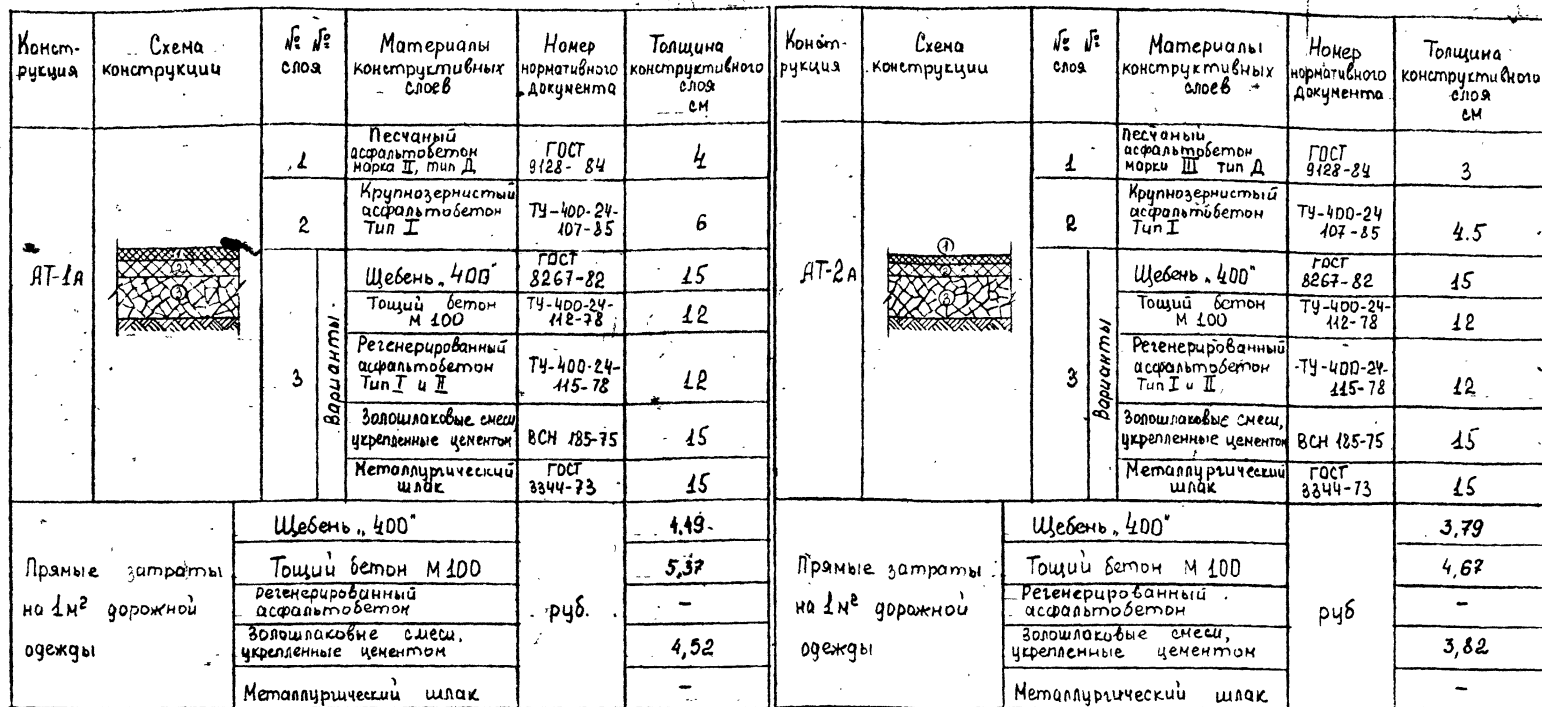 Конст-
рукция
Схема
конструкции
№ №
слоя
Материалы
конструктивных
слоев
Номер
нормативного
документа
Толщина
конструктивного
слоя
см
АТ-1А
1
2
3
1
Песчаный
асфальтобетон
марка II, тип Д
ГОСТ
9128-84
4
2
Крупнозернистый
асфальтобетон
Тип I
ТУ-400-24-
107-85
6
3
Варианты
Щебень „400"
ГОСТ
8267-82
15
Тощий бетон
М 100
ТУ-400-24-
112-78
12
Регенерированный
асфальтобетон
Тип I и II
ТУ-400-24-
115-78
12
Золошлаковые смеси,
укрепленные цементом
ВСН 185-75
15
Металлургический
шлак
ГОСТ
3344-73
15
Прямые затраты
на 1м² дорожной
одежды
руб.
Щебень „400"
4,49
Тощий бетон М 100
5,37
Регенерированный
асфальтобетон
-
Золошлаковые смеси,
укрепленные цементом
4,52
Металлургический шлак
-
Конст-
рукция
Схема
конструкции
№ №
слоя
Материалы
конструктивных
слоев
Номер
нормативного
документа
Толщина
конструктивного
слоя
см
АТ-2А
1
2
3
1
Песчаный
асфальтобетон
марки III тип Д
ГОСТ
9128-84
3
2
Крупнозернистый
асфальтобетон
Тип I
ТУ-400-24
107-85
4.5
3
Варианты
Щебень „400"
ГОСТ
8267-82
15
Тощий бетон
М 100
ТУ-400-24-
112-78
12
Регенерированный
асфальтобетон
Тип I и II
-ТУ-400-24-
115-78
12
Золошлаковые смеси,
укрепленные цементом
ВСН 185-75
15
Металлургический
шлак
ГОСТ
3344-73
15
Прямые затраты
на 1м² дорожной
одежды
руб
Щебень „400"
3,79
Тощий бетон М 100
4,67
Регенерированный
асфальтобетон
-
Золошлаковые смеси,
укрепленные цементом
3,82
Металлургический шлак
-